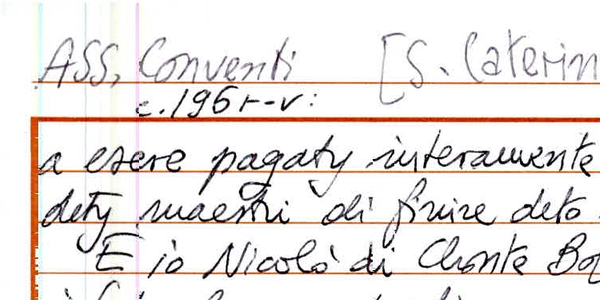 ASS, Conventi [S. Caterin
c. 196r-v:
a esere pagaty interamente
dety maestri di finire deto
E io Nicolò di Chonte Bo